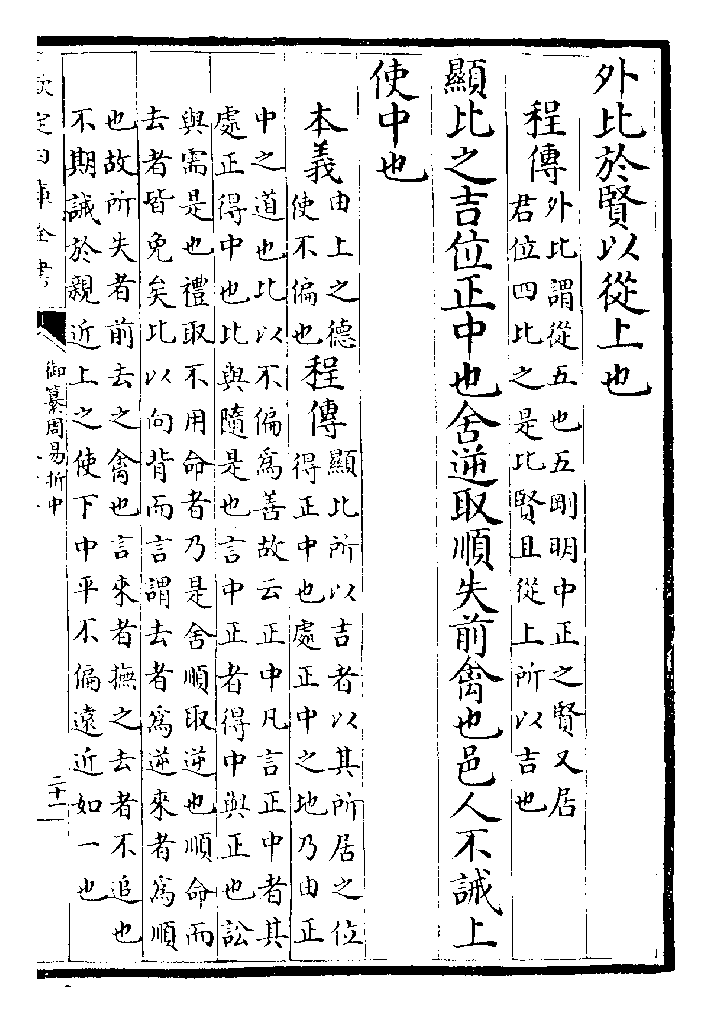 外比於賢以從上也
程傳外比謂從五也五剛明中正之賢又居
君位四比之是比賢且從上所以吉也
顯比之吉位正中也舍逆取順失前禽也邑人不誡上
使中也
本義由上之德
使不偏也
程傳顯比所以吉者以其所居之位
得正中也處正中之地乃由正
中之道也比以不偏為善故云正中凡言正中者其
處正得中也比與隨是也言中正者得中與正也訟
與需是也禮取不用命者乃是舍順取逆也順命而
去者皆免矣比以向背而言謂去者為逆來者為順
也故所失者前去之禽也言來者撫之去者不追也
不期誡於親近上之使下中平不偏遠近如一也
欽定四庫全書
御纂周易折中
二十二